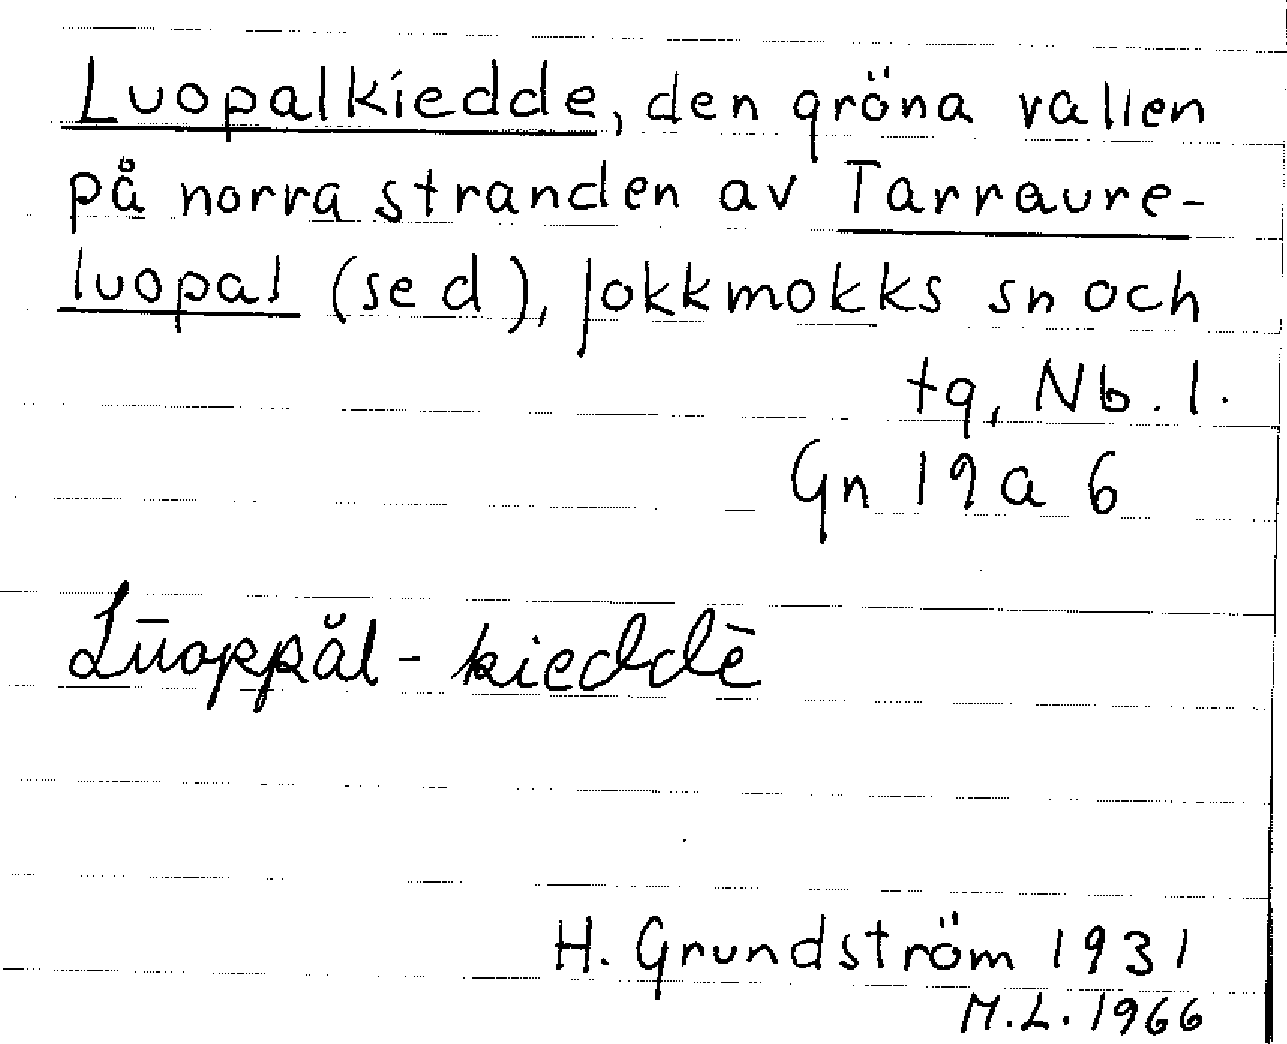 Luopalkiedde, den gröna vallen
på norra stranden av Tarraure-
luopal (se d), Jokkmokks sn och
tg, Nb. l.
Gn 19 a 6
Lūoppăl-kieddē
H. Grundström 1931
M.L. 1966